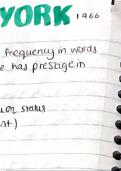 YORK 1966
frequency in words
e has prestige in
or status
nt)